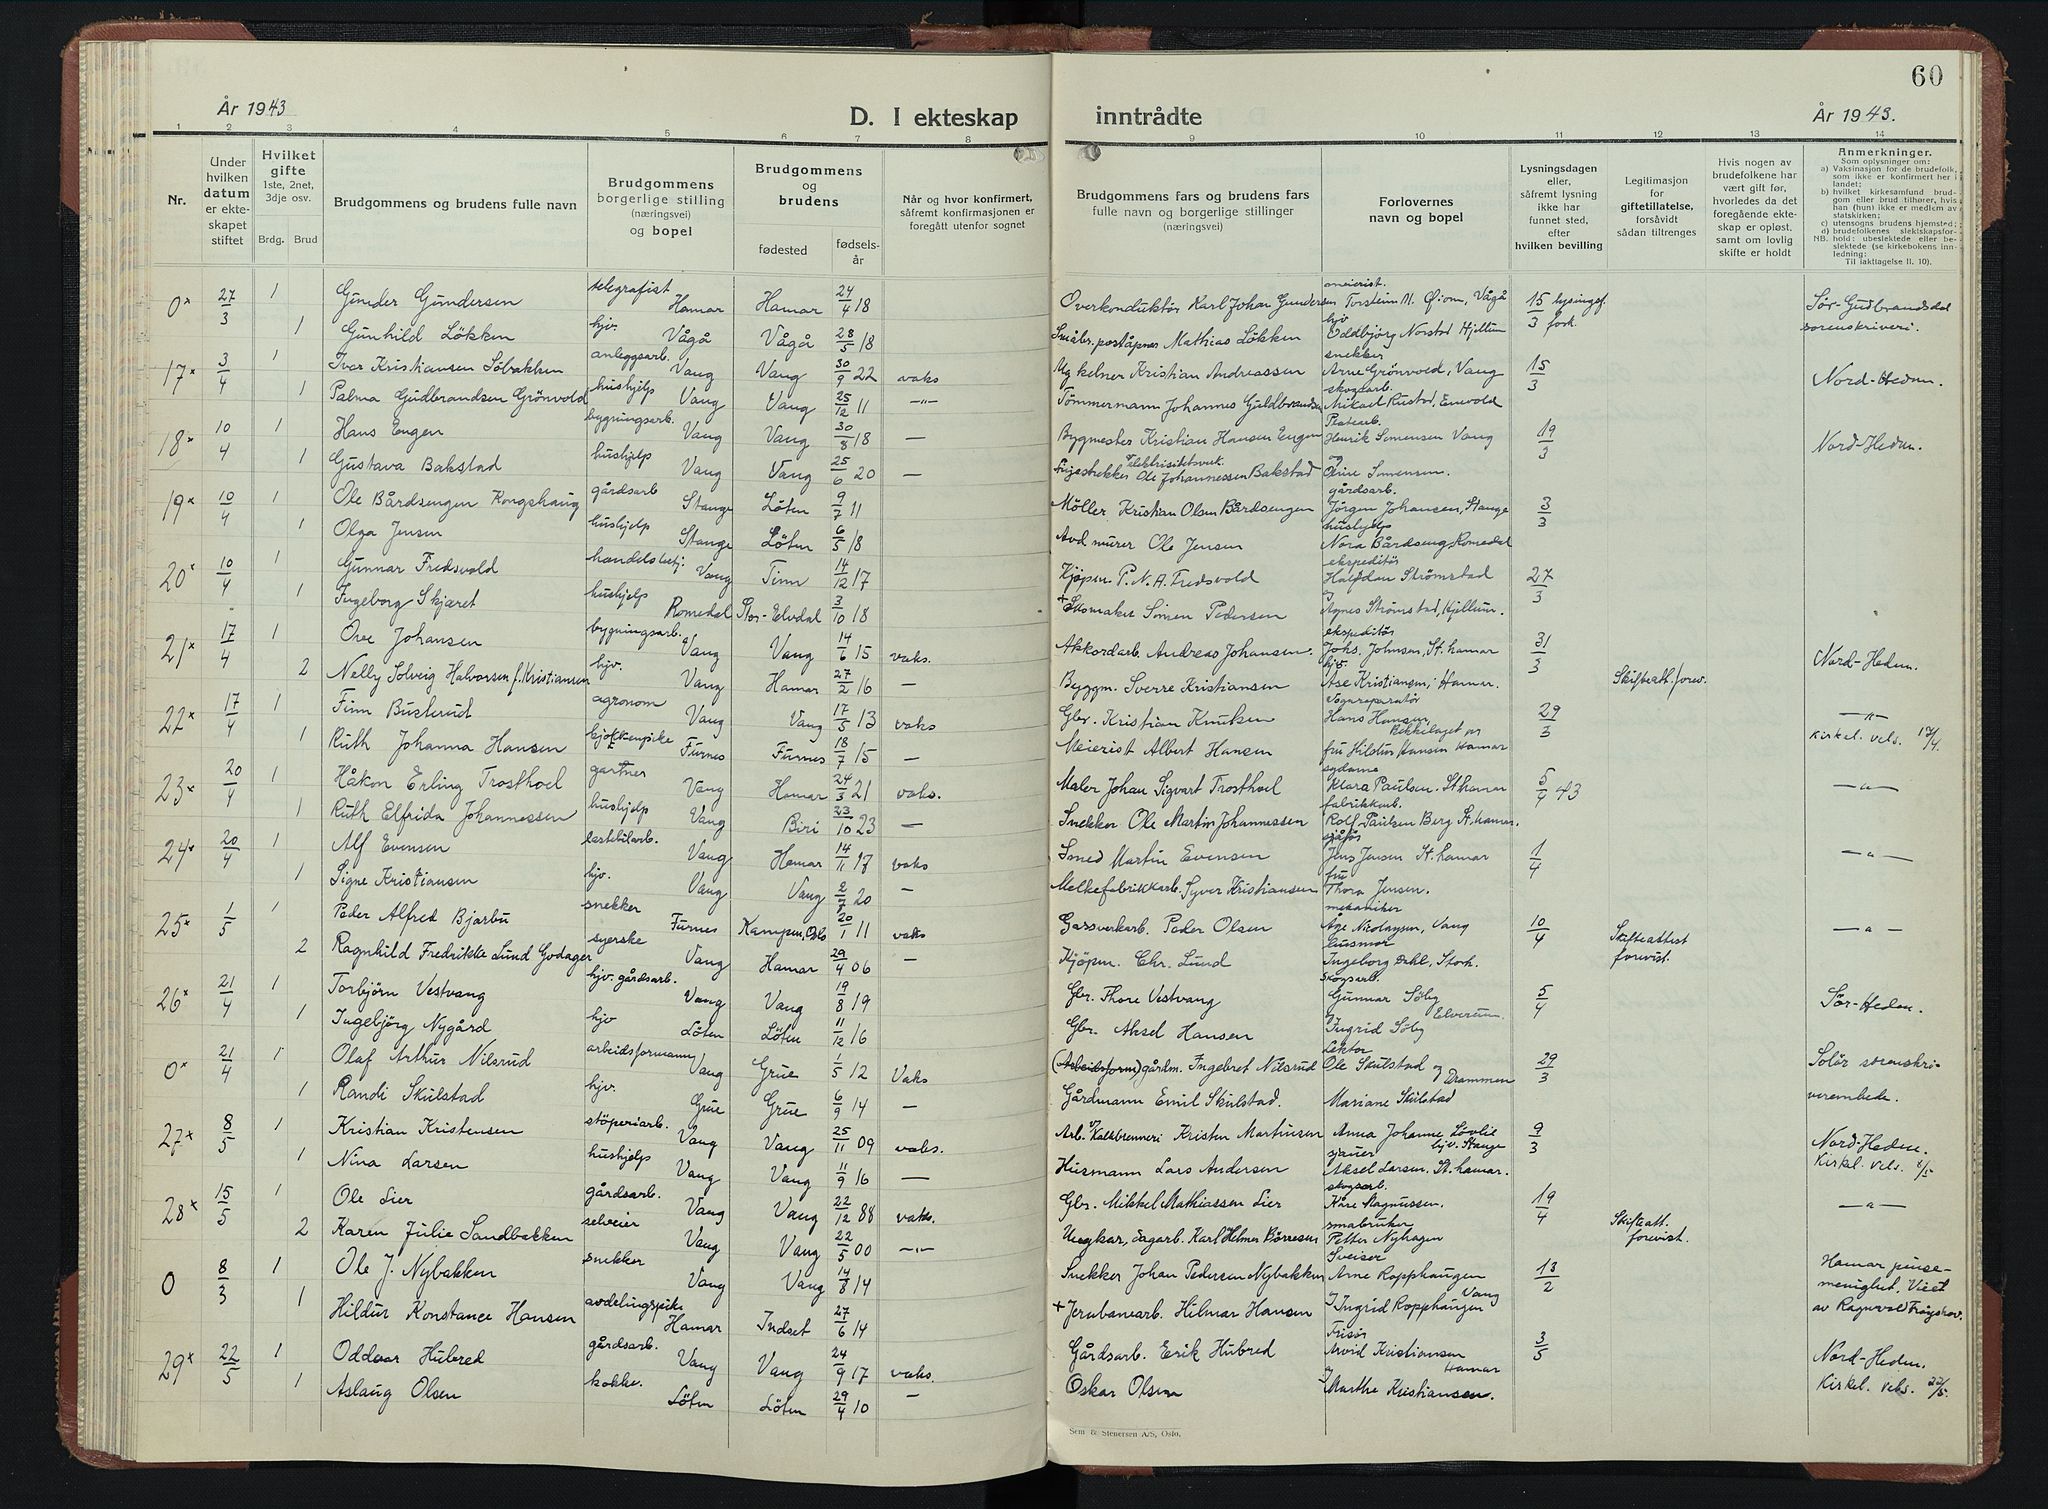 60
År 1943
D. I ekteskap
inntrådte
År 1943.
1 2 3 4 5 6 7 8 9 10 11 12 13 14
Nr.
Under hvilken datum er ekteskapet stiftet
Hvilket gifte 1ste, 2net, 3dje osv.
Brdg. Brud
Brudgommens og brudens fulle navn
Brudgommens borgerlige stilling (næringsvei) og bopel
Brudgommens og brudens
fødested
fødselsår
Når og hvor konfirmert, såfremt konfirmasjonen er foregått utenfor sognet
Brudgommens fars og brudens fars fulle navn og borgerlige stillinger (næringsvei)
Forlovernes navn og bopel
Lysningsdagen eller, såfremt lysning ikke har funnet sted, efter hvilken bevilling
Legitimasjon for giftetillatelse, forsåvidt sådan tiltrenges
Hvis nogen av brudefolkene har vært gift før, hvorledes da det foregående ekteskap er opløst, samt om lovlig skifte er holdt
Anmerkninger.
Som oplysninger om:
a) Vaksinasjon for de brudefolk, som ikke er konfirmert her i landet;
b) hvilket kirkesamfund brudgom eller brud tilhører, hvis han (hun) ikke er medlem av statskirken;
c) utensogns brudens hjemsted;
d) brudefolkenes slektskapsforhold: ubeslektede eller beslektede (se kirkebokens innledning:
NB. Til iakttagelse II. 10).
0x 27/3 1 Gunder Gundersen telegrafist Hamar Hamar 24/4 18 Overkonduktør Karl Johan Gundersen meierist. Torstein M. Øiom, Vågå 15/3 lysingsf. fork. Sør-Gudbrandsdal
1 Gunhild Løkken hjv. Vågå Vågå 28/5 18 Småbr. poståpner Mathias Løkken hjv Oddbjörg Norstad Hjellum sorenskriveri.
17x 3/4 1 Ivar Kristiansen Söbakken anleggsarb. Vang Vang 30/9 22 vaks Ug kelner Kristian Andreassen snekker Arne Grönvold, Vang 15/3 Nord-Hedm.
1 Palma Gudbrandsen Grönvold hushjelp Vang Vang 25/12 11 —"— Tömmermann Johannes Guldbrandsen skogsarb. Mikael Rustad, Enevold
18x 10/4 1 Hans Engen bygningsarb. Vang Vang 30/8 18 — Bygmester Kristian Hansen Engen Platearb. Henrik Simensen Vang 19/3 Nord-Hedm.
1 Gustava Bakstad hushjelp Vang Vang 25/6 20 — Ole Johannessen Bakstad og Oline Simensen.
19x 10/4 1 Ole Bårdsengen Kongshaug gårdsarb Stange Löten 9/7 11 Möller Kristian Olsen Bårdsengen gårdsarb. Jörgen Johansen, Stange 3/3
1 Olga Jensen hushjelp Stange Löten 6/5 18 Avd murer Ole Jensen hushjelp Nora Bårdseng, Romedal
20x 10/4 1 Gunnar Fredsvold handelsbetj. Vang Tinn 14/12 17 Kjöpm. P. N. A. Fredsvold ekspeditör Halfdan Strömstad 27/3
1 Ingeborg Skjæret hushjelp Romedal Stor-Elvdal 3/10 18 + Skomaker Simen Pedersen og Agnes Strömstad, Hjellum.
21x 17/4 1 Ove Johansen bygningsarb. Vang Vang 14/6 15 vaks. Akkordarb. Andreas Johansen. ekspeditör Johs. Johnsen, St. hamar 31/3 Nord-Hedm.
2 Nelly Solveig Halvorsen f. Kristiansen hjv. Vang Hamar 27/2 16 — Byggm. Sverre Kristiansen hjv. Åse Kristiansen, Hamar. Skifteatt. forev.
22x 17/4 1 Finn Busterud agronom Vang Vang 17/5 13 vaks Gbr. Kristian Knutsen Vognreparatör Hans Hansen, Bekkelaget pr 29/3 —"—
1 Ruth Johanna Hansen kjökkenpike Furnes Furnes 18/7 15 — Meierist Albert Hansen fru Hildur Hansen Hamar kirkel. vels. 17/4.
23x 20/4 1 Håkon Erling Trosthoel gartner Vang Hamar 24/3 21 vaks. Maler Johan Sigvart Trosthoel sydame Klara Paulsen. St. hamar 5/4 43 —"—
1 Ruth Elfrida Johannessen hushjelp Vang Biri 23/10 23 — Snekker Ole Martin Johannessen fabrikkarb. Rolf Paulsen Berg St. hamar.
24x 20/4 1 Alf Evensen lastebilarb. Vang Hamar 14/11 17 vaks Smed Martin Evensen sjåför Jens Jensen St. hamar 1/4 —"—
1 Signe Kristiansen hjv. Vang Vang 2/7 20 — Melkefabrikkarb. Syver Kristiansen fru Thora Jensen.
25x 1/5 1 Peder Alfred Bjarbu snekker Furnes Kampen, Oslo 20/1 11 vaks Gassverkarb. Peder Olsen mekaniker Åge Nicolaysen, Vang 10/4 Skifteattest —"—
2 Ragnhild Fredrikke Lund Godager syerske Vang Hamar 29/4 06 — Kjöpm. Chr. Lund husmor Ingeborg Dahl, Storh. forevist.
26x 21/4 1 Torbjörn Vestvang hjv. gårdsarb. Vang Vang 19/8 19 Gbr. Thore Vestvang skogsarb. Gunnar Söby 5/4 Sør-Hedm.
1 Ingebjörg Nygård hjv Löten Löten 11/12 16 Gbr. Aksel Hansen og Ingrid Söby Elverum.
0x 21/4 1 Olaf Arthur Nilsrud arbeidsformann Vang Grue 1/5 12 Vaks (Arbeidsform) gårdm. Ingebret Nilsrud Lektor Ole Skulstad og Drammen 29/3 Solör sorenskri-
1 Randi Skulstad hjv. Grue Grue 6/9 14 — Gårdmann Emil Skulstad. Mariane Skulstad verembede.
27x 8/5 1 Kristian Kristensen stöperiarb. Vang Vang 25/11 09 vaks. Arb. v/ Kalkbrenneri Kristen Martinsen Anna Johanne Lövlie hjv. Stange 9/3 Nord-Hedm.
1 Nina Larsen hushjelp Vang Vang 11/9 16 — Husmann Lars Andersen sjauer Aksel Larsen. St. hamar. Kirkel. vels. 8/5
28x 15/5 1 Ole Lier gårdsarb. Vang Vang 22/12 88 vaks. Gbr. Mikkel Mathiassen Lier skogsarb. Kåre Magnussen. 19/4 —"—
2 Karen Julie Sandbakken selveier Vang Vang 22/5 00 —"— Ungkar, dagarb. Karl Helmer Börresen småbruker Petter Nyhagen Skifteatt. forevist.
0 8/3 1 Ole J. Nybakken snekker Vang Vang 14/8 14 Snekker Johan Pedersen Nybakken Sveiser Arne Ropphaugen 13/2 Hamar pinse-
1 Hildur Konstance Hansen avdelingspike Hamar Indset 27/6 14 + Jernbanearb. Hilmar Hansen og Ingrid Ropphaugen Vang menighet. Viet av Ragnvald
29x 22/5 1 Oddvar Hubred gårdsarb. Vang Vang 24/9 17 vaks. Gårdsarb. Erik Hubred Frisör Arvid Kristiansen 3/5 Nord-Hedm.
1 Aslaug Olsen kokke. Löten Löten 29/4 10 — Oskar Olsen og Marthe Kristiansen. Hamar Kirkel. vels. 22/5.
Sem & Stenersen A/S, Oslo.